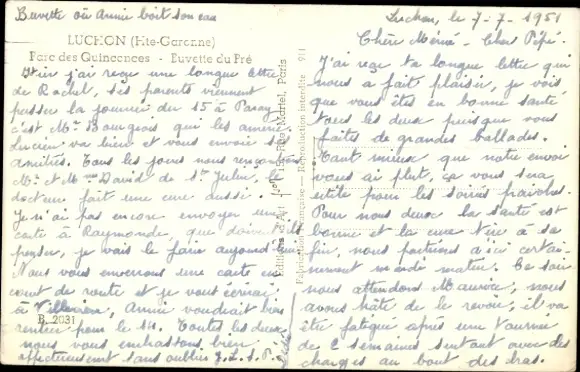 Buvette où Annie boit son eau
LUCHON (Hte-Garonne)
Parc des Quinconces - Buvette du Pré
Luchon, le 7-7-1951
Chère Mémé - Cher Pépé.
J'ai reçu ta longue lettre qui
nous a fait plaisir, je vois
que vous êtes en bonne santé
tous les deux puisque vous
faites de grandes ballades.
Tant mieux que notre envoi
vous ai plut, ça vous sera
utile pour les soirées fraîches.
Pour nous deux la santé est
bonne et la cure tire à sa
fin, nous partirons d'ici certai-
nement mardi matin. Ce soir
nous attendons Maurice, nous
avons hâte de le revoir, il va
être fatigué après une tournée
de 2 semaines surtout avec des
charges au bout des bras.
Hier j'ai reçu une longue lettre
de Rachel, ses parents viennent
passer la journée du 15 à Paray
c'est Mr Bourgeois qui les amène
Lucien va bien et vous envoie ses
amitiés. Tous les jours nous rencontrons
Mr et Mme David de St Julien, le
docteur fait une cure aussi.
Je n'ai pas encore envoyer une
carte à Raymonde, que doivent-ils
penser, je vais le faire aujourd'hui
Nous vous enverrons une carte en
cours de route et je vous écrirai
à Annie voudrait bien
rentrer pour le 14. Toutes les deux
nous vous embrassons bien
affectueusement sans oublier J.L.S.P.
B. 2031
Rue Martel, Paris
Française — Reproduction interdite 911